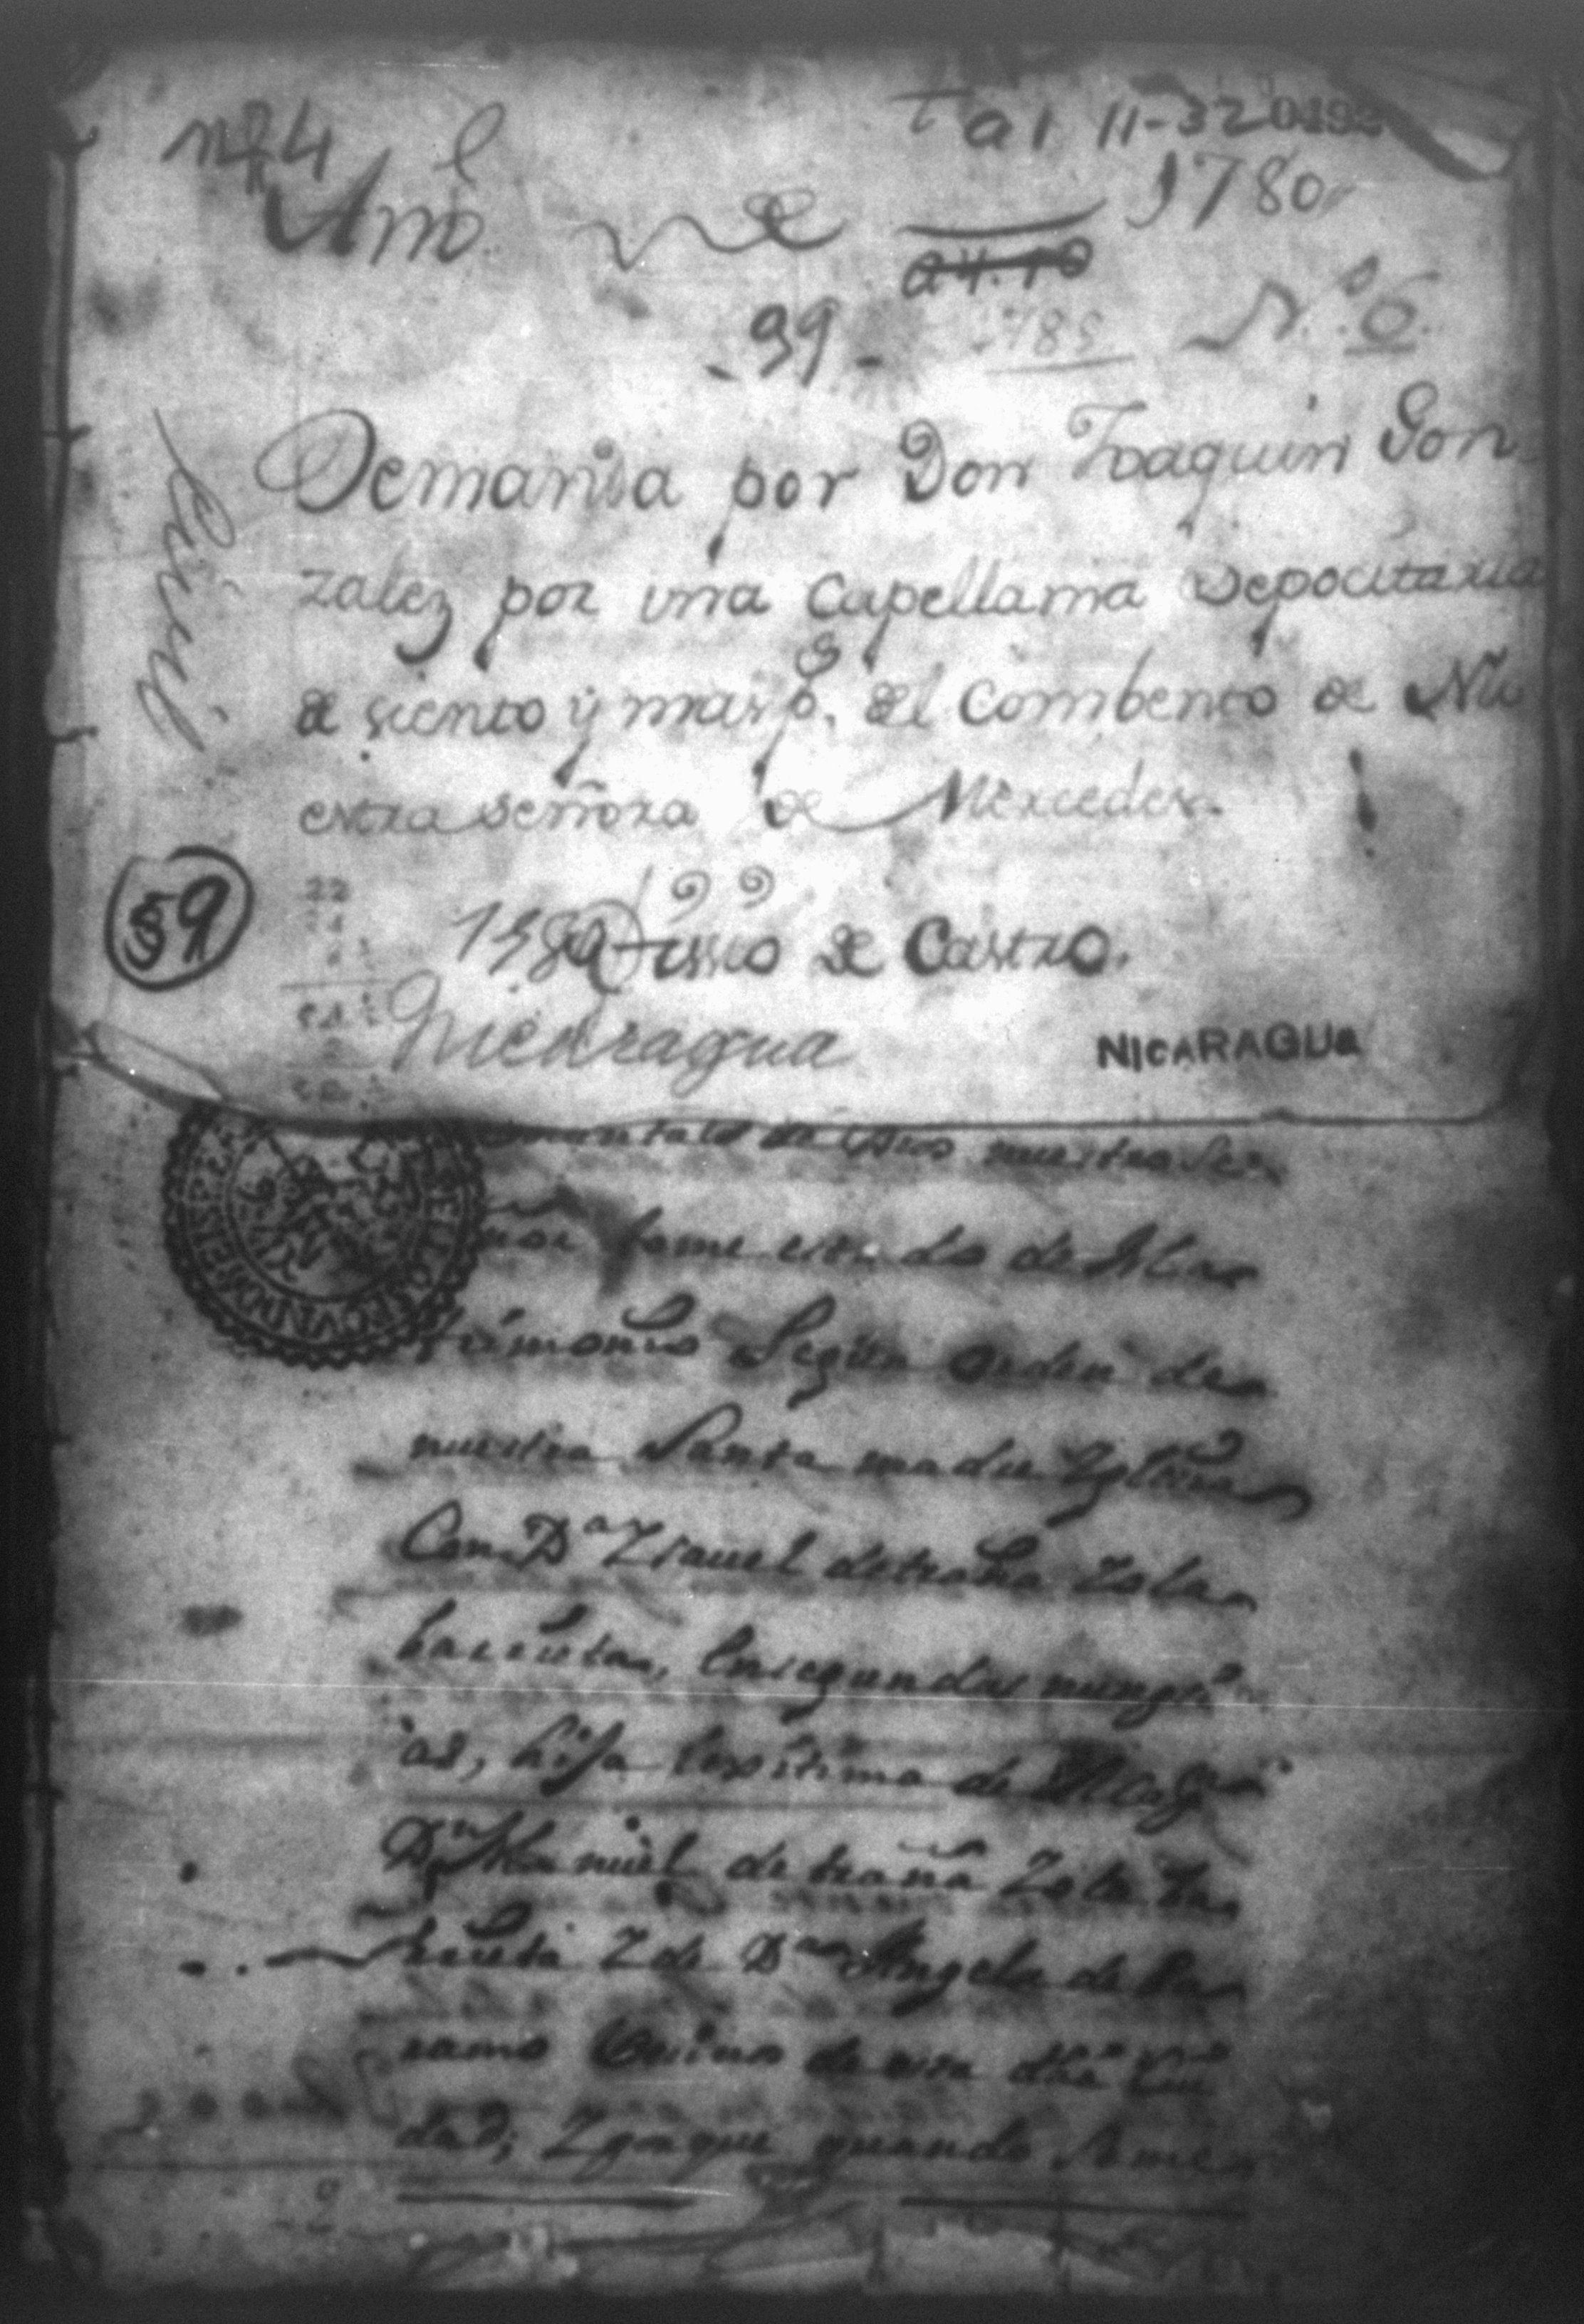 nº 4
a1 11-32 0492
Año de 1780
a4.10
- 39 -
1785
Nº. 6.
Civil
Demanda por Don Joaquin Gon
zalez por una Capellania depocitaria
de siento y mas p.s del Combento de Nu
estra señora de Mercedes.
59
1780
de Castro.
Nicaragua
NICARAGUa
de Dios nuestro Se
ñor tome estado de Ma
trimonio Segun orden de
nuestra Santa madre Yglecia
Con D.a Ysavel de traña Zala
barrieta, en segundas nungsi
as, hija lexitima de
D.n Manuel de traña Zala ba
rrieta Y de D.a Angela de Pa
ramo Vecinos de esta dha Ciu
dad; Y porque quando